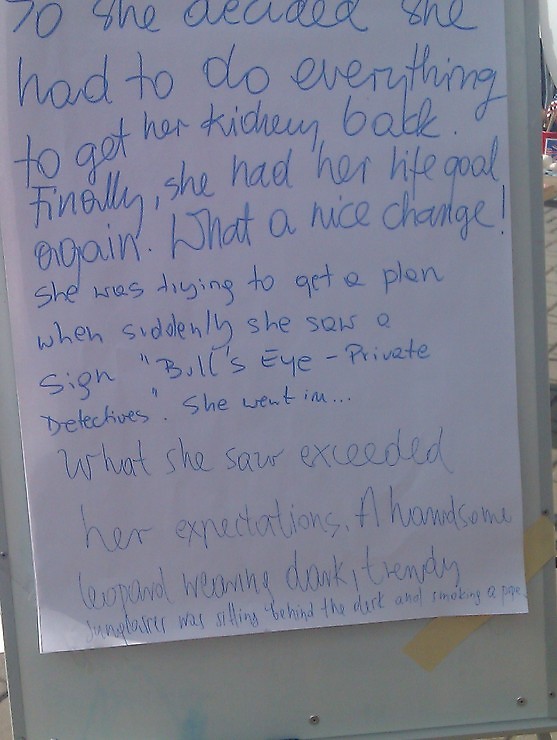 So she decided she
had to do everything
to get her kidney back.
Finally, she had her life goal
again. What a nice change!
She was trying to get a plan
when suddenly she saw a
sign "Bull's Eye - Private
Detectives". She went in...
What she saw exceeded
her expectations. A handsome
leopard wearing dark, trendy
sunglasses was sitting behind the desk and smoking a pipe.